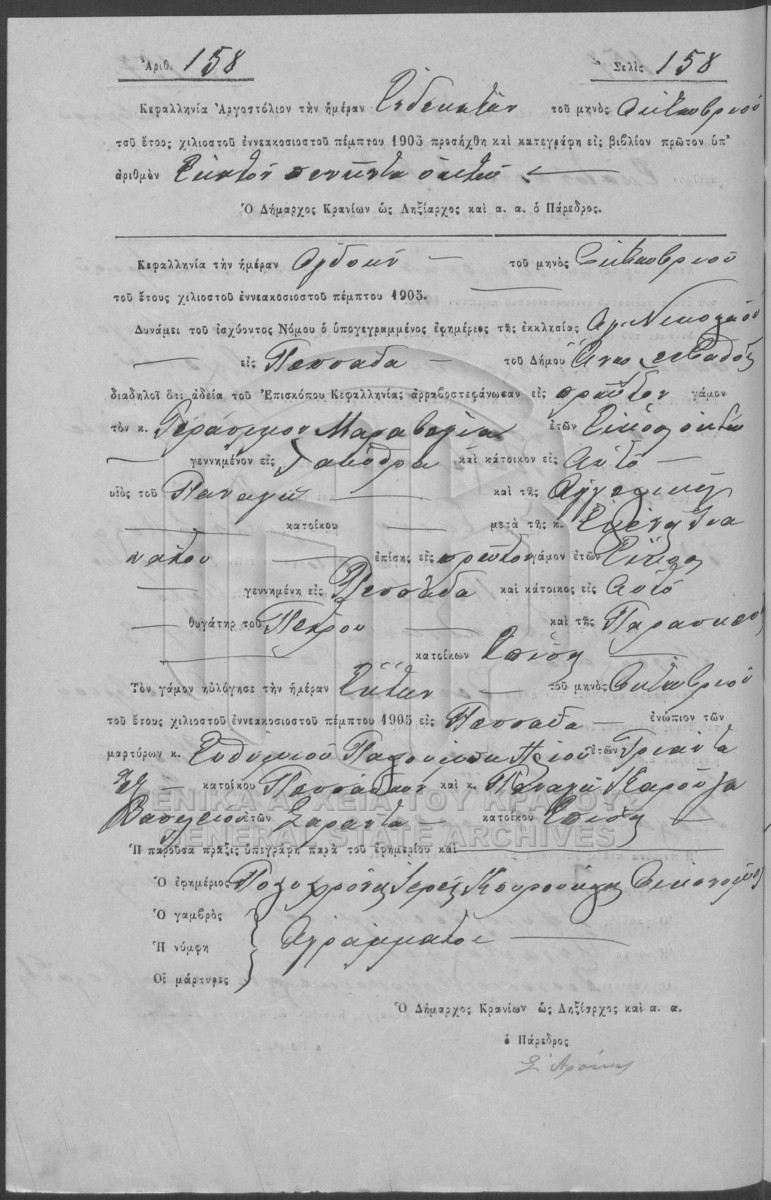 Ἀριθ. 158 Σελὶς 158
Κεφαλληνία Ἀργοστόλιον τὴν ἡμέραν Ἑνδεκάτην τοῦ μηνὸς Ὀκτωβρίου
τοῦ ἔτους χιλιοστοῦ ἐννεακοσιοστοῦ πέμπτου 1905 προσήχθη καὶ κατεγράφη εἰς βιβλίον πρῶτον ὑπ'
ἀριθμὸν Ἑκατὸν πενῆντα ὀκτώ
Ὁ Δήμαρχος Κρανίων ὡς Ληξίαρχος καὶ α. α. ὁ Πάρεδρος.
Κεφαλληνία τὴν ἡμέραν Ὀγδόην τοῦ μηνὸς Ὀκτωβρίου
τοῦ ἔτους χιλιοστοῦ ἐννεακοσιοστοῦ πέμπτου 1905.
Δυνάμει τοῦ ἰσχύοντος Νόμου ὁ ὑπογεγραμμένος ἐφημέριος τῆς ἐκκλησίας Ἁγ. Νικολάου
εἰς Πεσσάδα τοῦ Δήμου
διαδηλοῖ ὅτι ἀδείᾳ τοῦ Ἐπισκόπου Κεφαλληνίας ἀρραβοστεφάνωσαν εἰς πρῶτον γάμον
τὸν κ. Γεράσιμον ἐτῶν Εἴκοσι ὀκτὼ
γεννημένον εἰς καὶ κάτοικον εἰς Αὐτό
υἱὸς τοῦ Παναγῆ καὶ τῆς Ἀγγελικῆς
κατοίκου μετὰ τῆς κ. Ἑλένης
ἐπίσης εἰς πρῶτον γάμον ἐτῶν Εἴκοσι
γεννημένη εἰς Πεσσάδα καὶ κάτοικος εἰς Αὐτό
θυγάτηρ τοῦ Πέτρου καὶ τῆς Παρασκευῆς
κατοίκων Ἐπίσης
Τὸν γάμον ηὐλόγησε τὴν ἡμέραν Ἕκτην τοῦ μηνὸς Ὀκτωβρίου
τοῦ ἔτους χιλιοστοῦ ἐννεακοσιοστοῦ πέμπτου 1905 εἰς Πεσσάδα ἐνώπιον τῶν
μαρτύρων κ. Εὐθυμίου ἐτῶν Τριάντα
ἓξ κατοίκου Πεσσάδων καὶ κ. Παναγῆ
Βασιλείου ἐτῶν Σαράντα κατοίκου Ἐπίσης
ΓΕΝΙΚΑ ΑΡΧΕΙΑ ΤΟΥ ΚΡΑΤΟΥΣ
GENERAL STATE ARCHIVES
Ἡ παροῦσα πρᾶξις ὑπεγράφη παρὰ τοῦ ἐφημερίου καὶ
Ὁ ἐφημέριος Πολυχρόνης Ἱερεὺς Οἰκονόμος
Ὁ γαμβρὸς
Ἡ νύμφη Ἀγράμματοι
Οἱ μάρτυρες
Ὁ Δήμαρχος Κρανίων ὡς Ληξίαρχος καὶ α. α.
ὁ Πάρεδρος